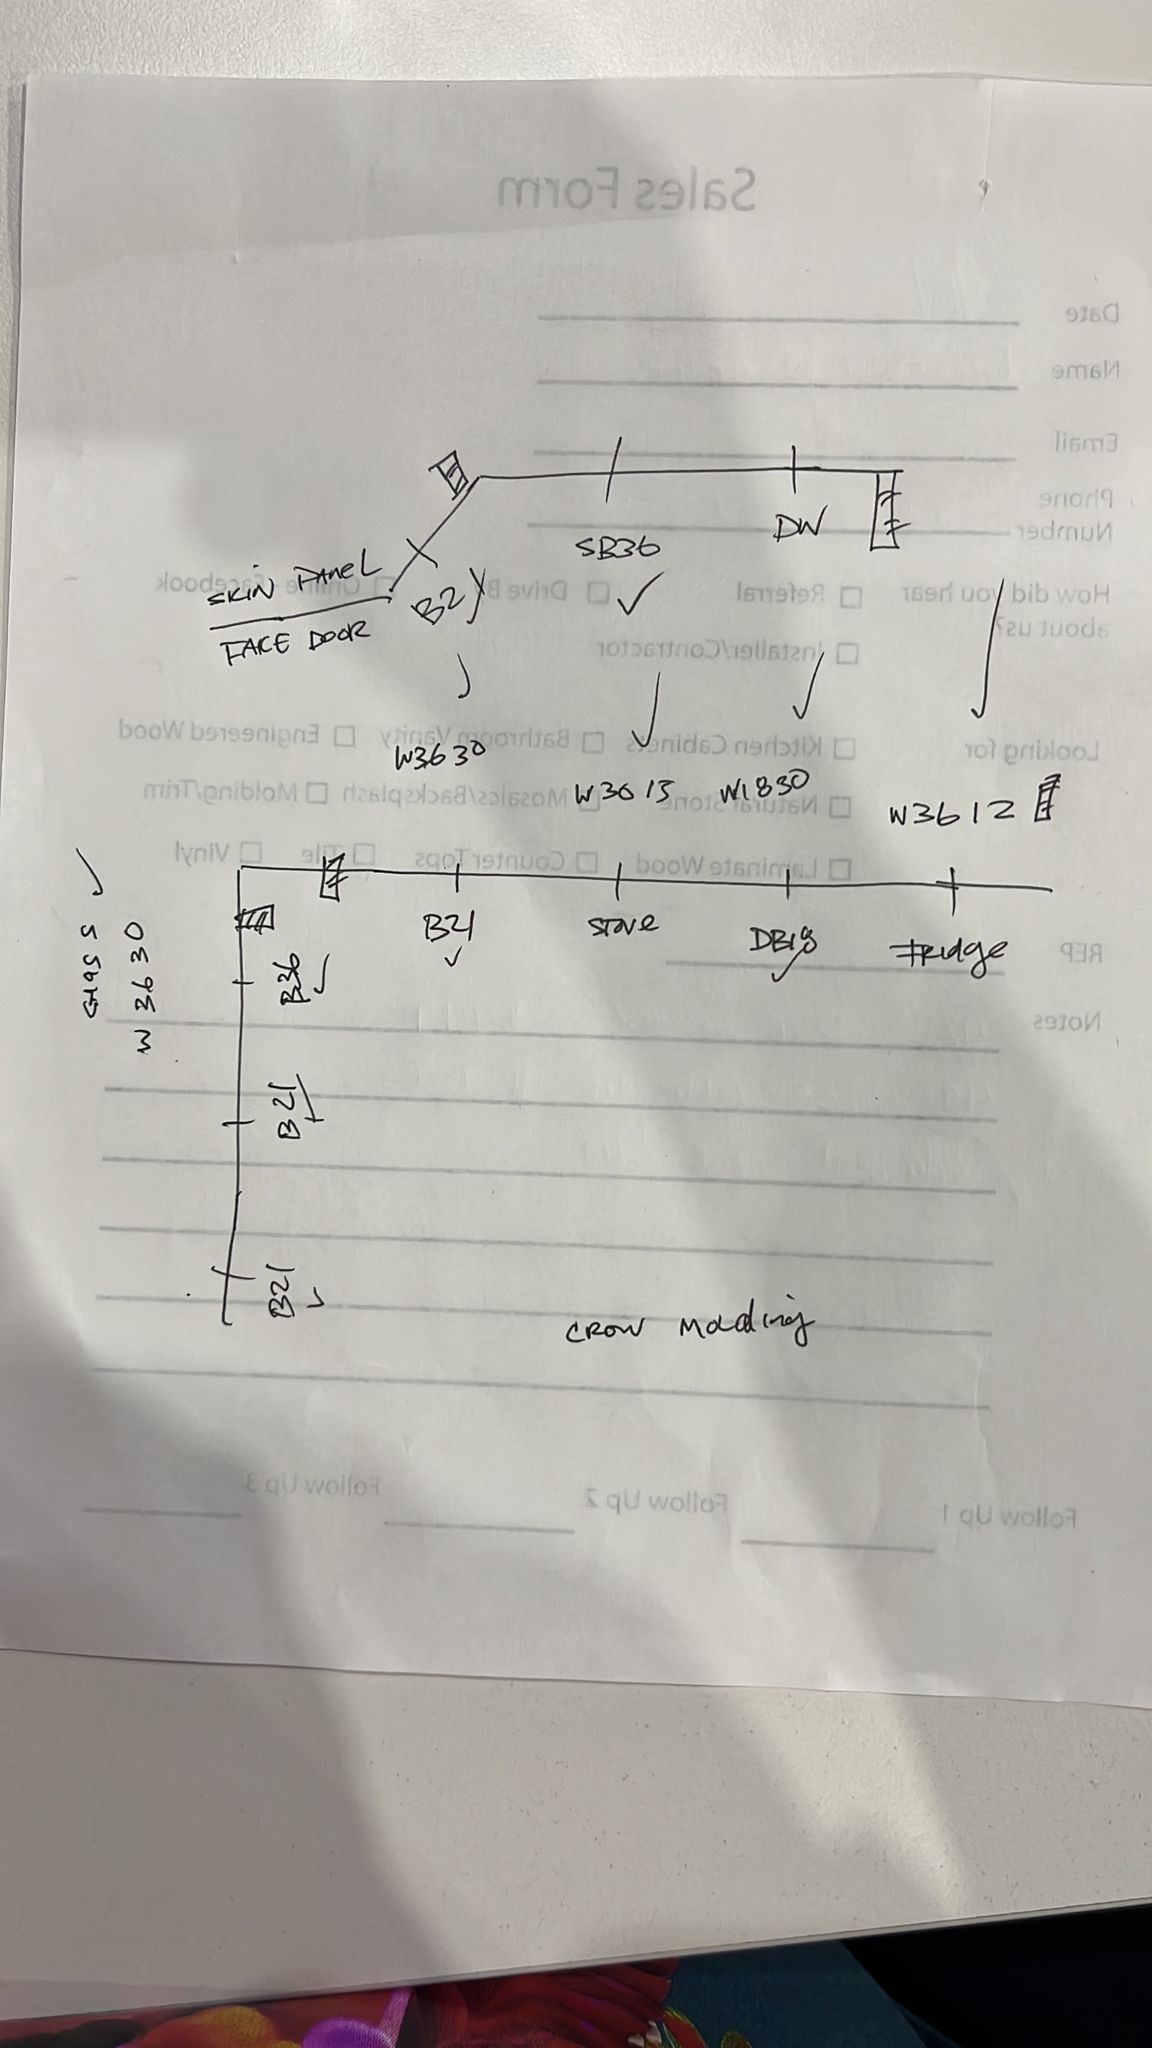 Sales Form
Date
Name
Email
Phone
Number
SB36
DW
SKIN PANEL
FACE DOOR
How did you hear
about us?
Referral
Drive By
Online
Facebook
Installer/Contractor
Looking for
Kitchen Cabinets
Bathroom Vanity
Engineered Wood
Natural Stone
Mosaics/Backsplash
Molding/Trim
Laminate Wood
CounterTops
Tile
Vinyl
W3630
W3015
W1830
W3612
B21
STOVE
DB18
FRIDGE
GLASS
W3630
B36
B21
B21
REP
Notes
CROW Molding
Follow Up 1
Follow Up 2
Follow Up 3